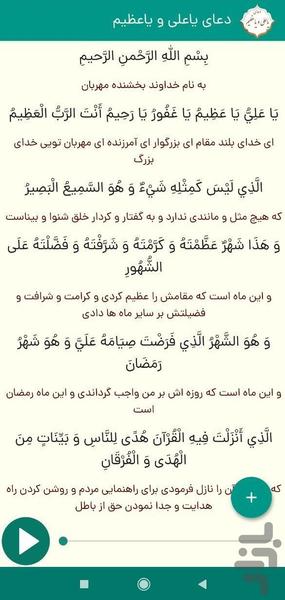 دعای یاعلی و یاعظیم
بِسْمِ اللَّهِ الرَّحْمنِ الرَّحیمِ
به نام خداوند بخشنده مهربان
یَا عَلِیُّ یَا عَظِیمُ یَا غَفُورُ یَا رَحِیمُ أَنْتَ الرَّبُّ الْعَظِیمُ
ای خدای بلند مقام ای بزرگوار ای آمرزنده ای مهربان تویی خدای
بزرگ
الَّذِي لَیْسَ کَمِثْلِهِ شَيْءٌ وَ هُوَ السَّمِیعُ الْبَصِیرُ
که هیچ مثل و مانندی ندارد و به گفتار و کردار خلق شنوا و بیناست
وَ هَذَا شَهْرٌ عَظَّمْتَهُ وَ کَرَّمْتَهُ وَ شَرَّفْتَهُ وَ فَضَّلْتَهُ عَلَی
الشُّهُورِ
و این ماه است که مقامش را عظیم کردی و کرامت و شرافت و
فضیلتش بر سایر ماه ها دادی
وَ هُوَ الشَّهْرُ الَّذِي فَرَضْتَ صِیَامَهُ عَلَيَّ وَ هُوَ شَهْرُ
رَمَضَانَ
و این ماه است که روزه اش بر من واجب گرداندی و این ماه رمضان
است
الَّذِي أَنْزَلْتَ فِیهِ الْقُرْآنَ هُدًی لِلنَّاسِ وَ بَیِّنَاتٍ مِنَ
الْهُدَی وَ الْفُرْقَانِ
که را نازل فرمودی برای راهنمایی مردم و روشن کردن راه
هدایت و جدا نمودن حق از باطل
بازار